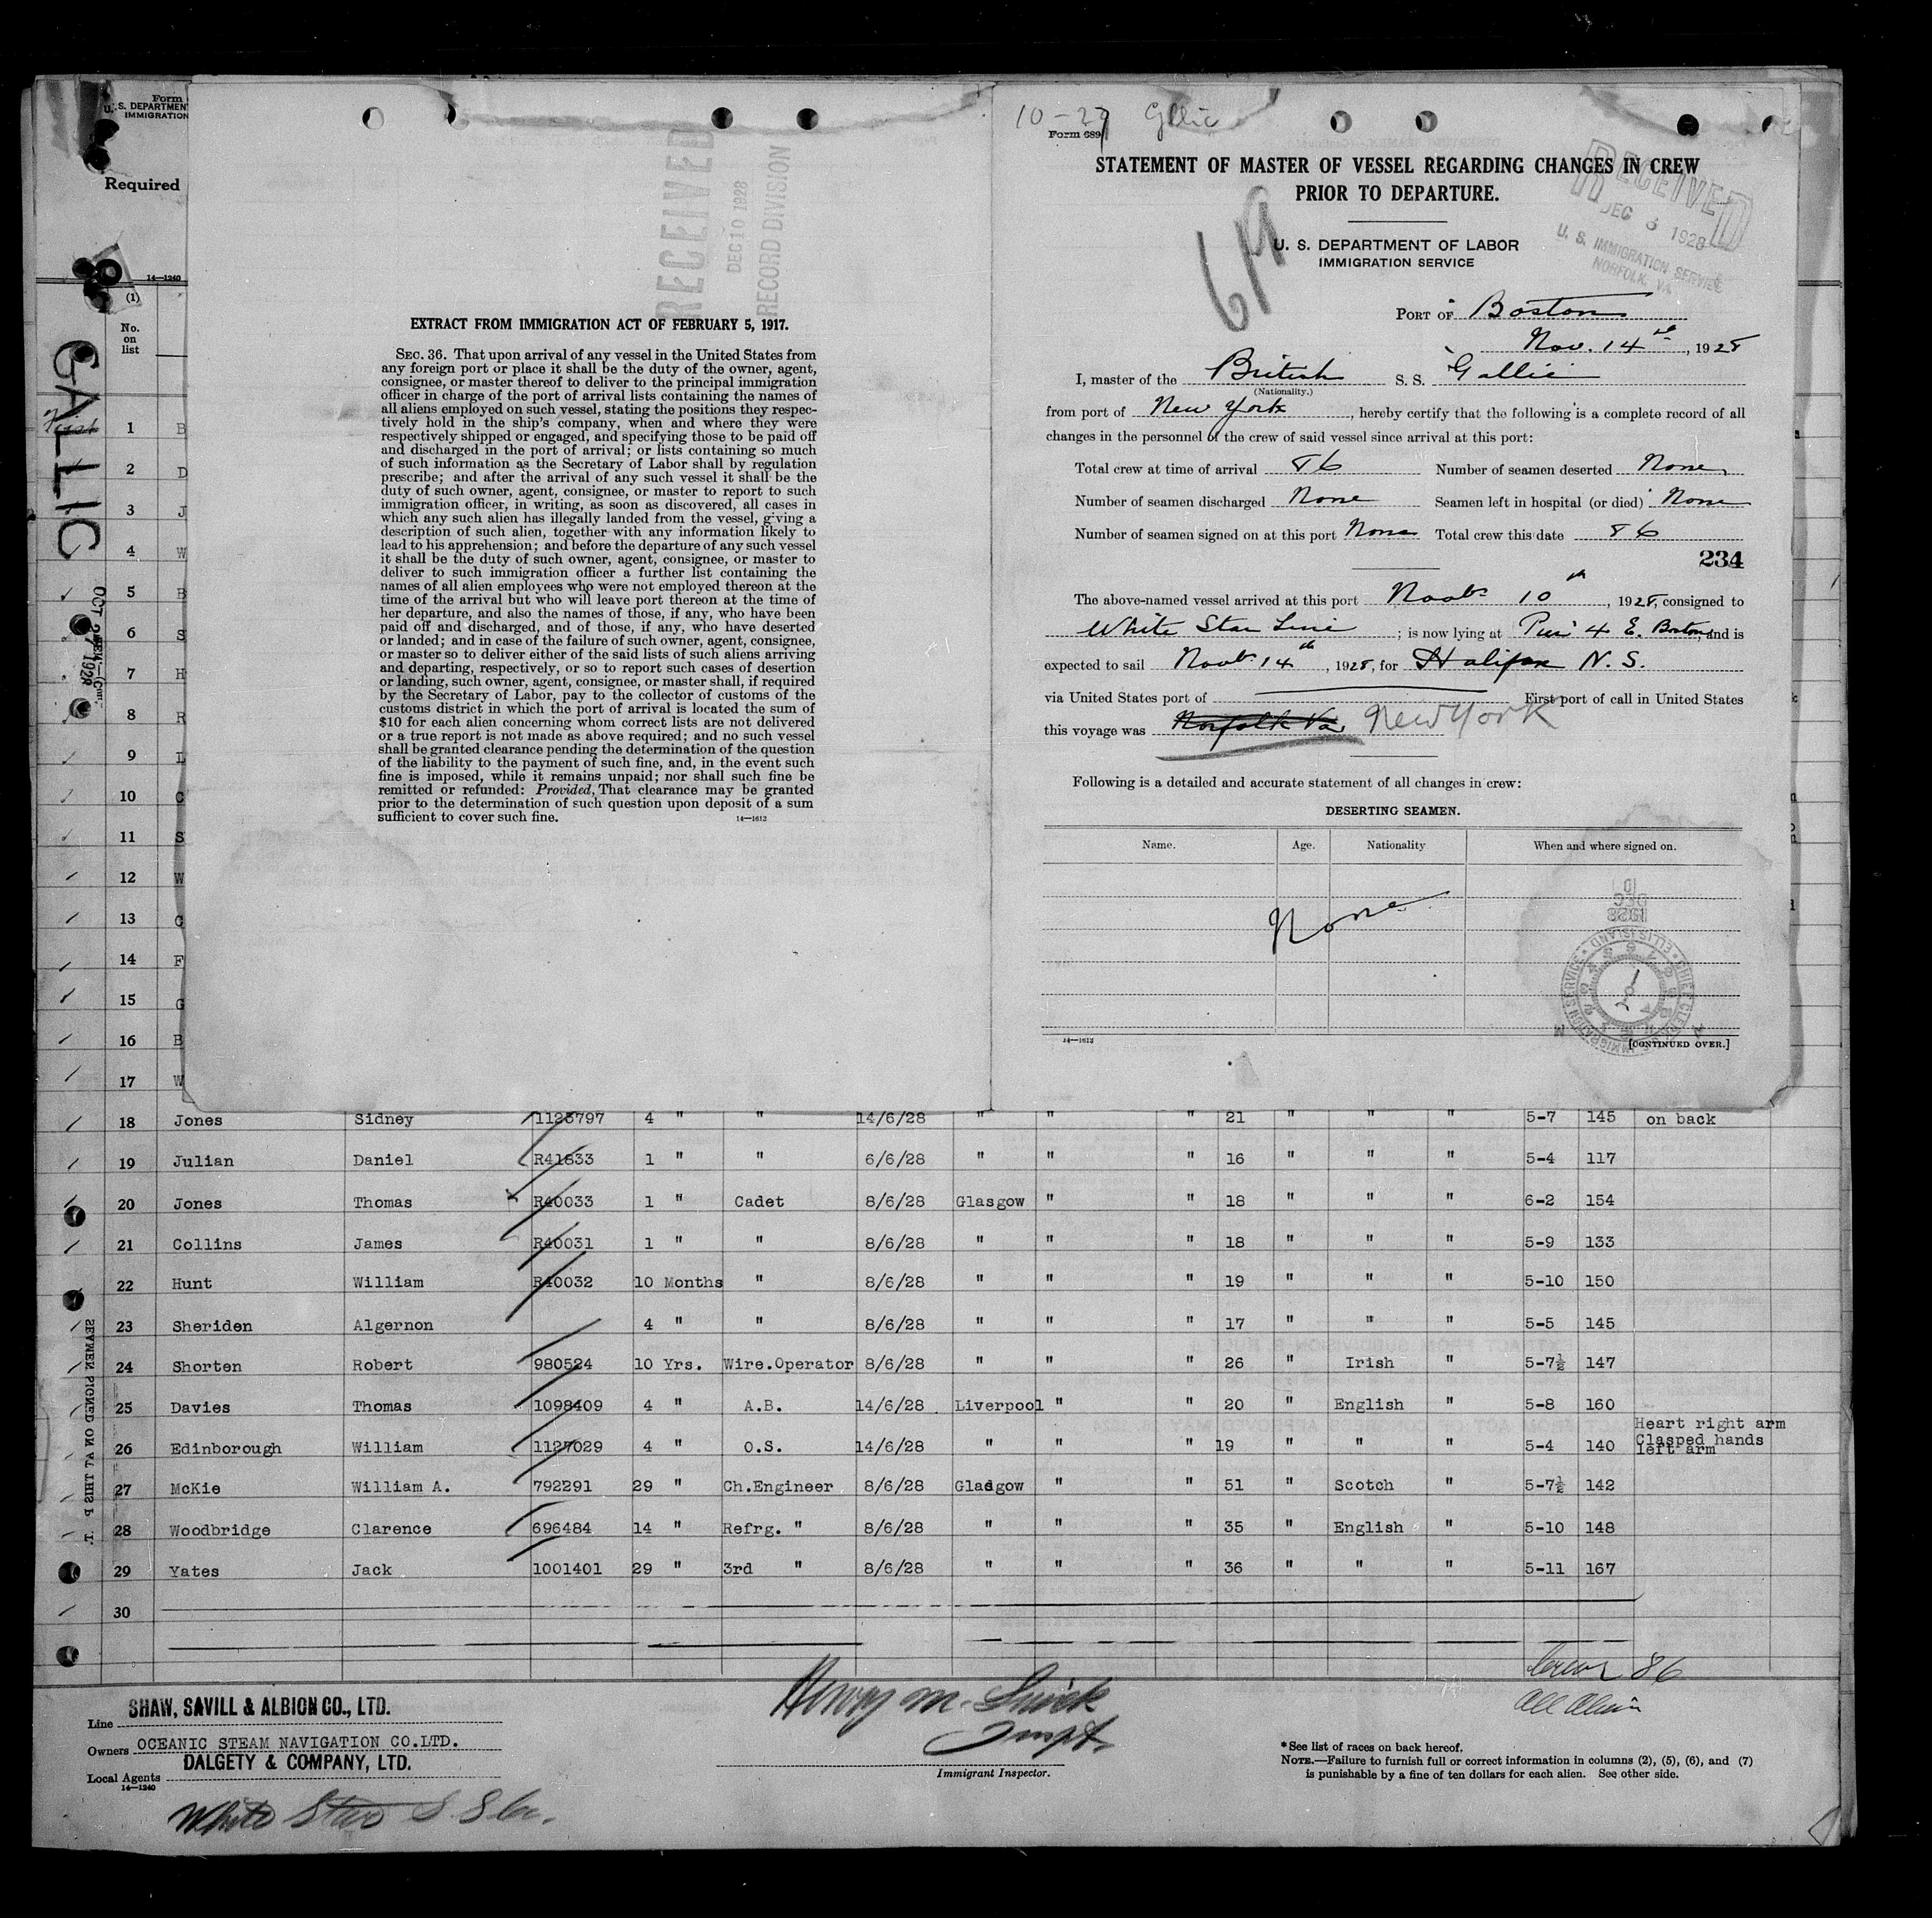 Form
U. S. DEPARTMEN
IMMIGRATION
Required
14—1240
(1)
No.
on
list
GALLIC
OCT 27 1928
First
1 B
2 D
3 J
4 W
5 B
6 S
7 H
8 R
9 L
10 C
11 S
12 W
13 C
14 F
15 G
16 B
17 W
RECEIVED
DEC 10 1928
RECORD DIVISION
EXTRACT FROM IMMIGRATION ACT OF FEBRUARY 5, 1917.
SEC. 36. That upon arrival of any vessel in the United States from
any foreign port or place it shall be the duty of the owner, agent,
consignee, or master thereof to deliver to the principal immigration
officer in charge of the port of arrival lists containing the names of
all aliens employed on such vessel, stating the positions they respec-
tively hold in the ship's company, when and where they were
respectively shipped or engaged, and specifying those to be paid off
and discharged in the port of arrival; or lists containing so much
of such information as the Secretary of Labor shall by regulation
prescribe; and after the arrival of any such vessel it shall be the
duty of such owner, agent, consignee, or master to report to such
immigration officer, in writing, as soon as discovered, all cases in
which any such alien has illegally landed from the vessel, giving a
description of such alien, together with any information likely to
lead to his apprehension; and before the departure of any such vessel
it shall be the duty of such owner, agent, consignee, or master to
deliver to such immigration officer a further list containing the
names of all alien employees who were not employed thereon at the
time of the arrival but who will leave port thereon at the time of
her departure, and also the names of those, if any, who have been
paid off and discharged, and of those, if any, who have deserted
or landed; and in case of the failure of such owner, agent, consignee,
or master so to deliver either of the said lists of such aliens arriving
and departing, respectively, or so to report such cases of desertion
or landing, such owner, agent, consignee, or master shall, if required
by the Secretary of Labor, pay to the collector of customs of the
customs district in which the port of arrival is located the sum of
$10 for each alien concerning whom correct lists are not delivered
or a true report is not made as above required; and no such vessel
shall be granted clearance pending the determination of the question
of the liability to the payment of such fine, and, in the event such
fine is imposed, while it remains unpaid; nor shall such fine be
remitted or refunded: Provided, That clearance may be granted
prior to the determination of such question upon deposit of a sum
sufficient to cover such fine.
14—1612
10-27 Gallic
Form 689
STATEMENT OF MASTER OF VESSEL REGARDING CHANGES IN CREW
PRIOR TO DEPARTURE.
619
RECEIVED
DEC 3 1928
U. S. IMMIGRATION SERVICE
NORFOLK, VA.
U. S. DEPARTMENT OF LABOR
IMMIGRATION SERVICE
PORT OF Boston
Nov. 14th, 1928
I, master of the British S. S. Gallic
(Nationality.)
from port of New York, hereby certify that the following is a complete record of all
changes in the personnel of the crew of said vessel since arrival at this port:
Total crew at time of arrival 86 Number of seamen deserted None
Number of seamen discharged None Seamen left in hospital (or died) None
Number of seamen signed on at this port None Total crew this date 86
234
The above-named vessel arrived at this port Novbr 10th, 1928, consigned to
White Star Line; is now lying at Pier 4 E. Boston, and is
expected to sail Novbr 14th, 1928, for Halifax N. S.
via United States port of First port of call in United States
this voyage was Norfolk Va New York
Following is a detailed and accurate statement of all changes in crew:
DESERTING SEAMEN.
Name. Age. Nationality When and where signed on.
None
DEC 10 1928
CHIEF CLERK IMMIGRATION SERVICE ELLIS ISLAND
14—1612
[CONTINUED OVER.]
18 Jones Sidney 1123797 4 " " 14/6/28 " " " 21 " " " 5-7 145 on back
19 Julian Daniel R41833 1 " " 6/6/28 " " " 16 " " " 5-4 117
20 Jones Thomas R40033 1 " Cadet 8/6/28 Glasgow " " 18 " " " 6-2 154
21 Collins James R40031 1 " " 8/6/28 " " " 18 " " " 5-9 133
22 Hunt William R40032 10 Months " 8/6/28 " " " 19 " " " 5-10 150
23 Sheriden Algernon 4 " " 8/6/28 " " " 17 " " " 5-5 145
24 Shorten Robert 980524 10 Yrs. Wire.Operator 8/6/28 " " " 26 " Irish " 5-7½ 147
25 Davies Thomas 1098409 4 " A.B. 14/6/28 Liverpool " " 20 " English " 5-8 160
Heart right arm
26 Edinborough William 1127029 4 " O.S. 14/6/28 " " " 19 " " " 5-4 140 Clasped hands
left arm
27 McKie William A. 792291 29 " Ch.Engineer 8/6/28 Glasgow " " 51 " Scotch " 5-7½ 142
28 Woodbridge Clarence 696484 14 " Refrg. " 8/6/28 " " " 35 " English " 5-10 148
29 Yates Jack 1001401 29 " 3rd " 8/6/28 " " " 36 " " " 5-11 167
30
SEAMEN SIGNED ON AT THIS P T.
Crew 86
All Alien
Line SHAW, SAVILL & ALBION CO., LTD.
Owners OCEANIC STEAM NAVIGATION CO.LTD.
Local Agents DALGETY & COMPANY, LTD.
14—1240
White Star S. S. Co.
Henry M.
Inspt.
Immigrant Inspector.
*See list of races on back hereof.
NOTE.—Failure to furnish full or correct information in columns (2), (5), (6), and (7)
is punishable by a fine of ten dollars for each alien. See other side.